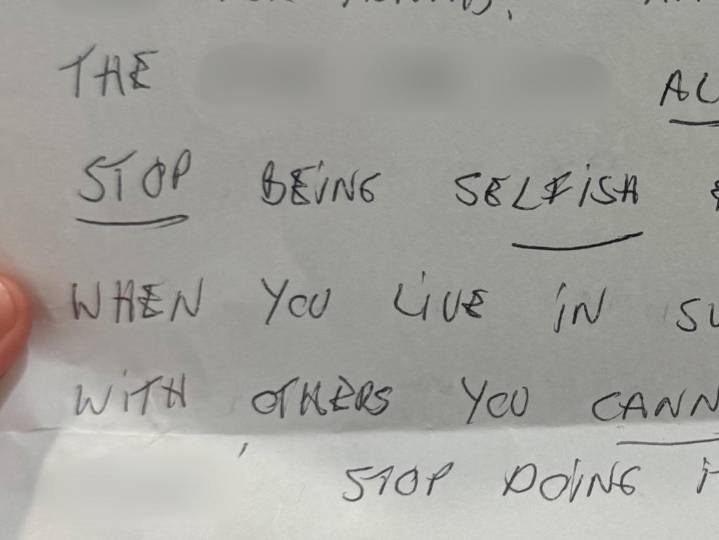 THE AL
STOP BEING SELFISH
WHEN YOU LIVE IN SU
WITH OTHERS YOU CANN
, STOP DOING I